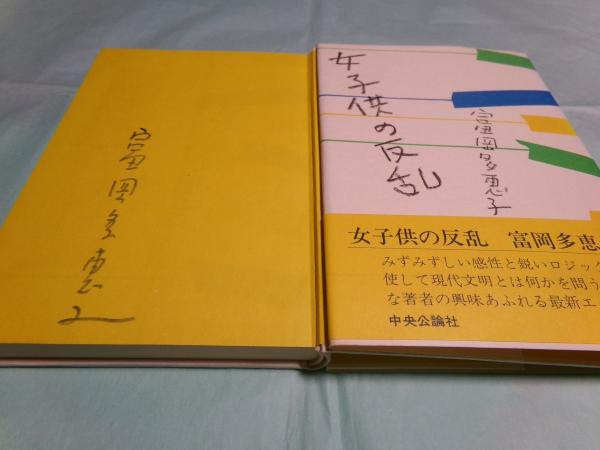 富岡多恵子
女子供の反乱
富岡多恵子
女子供の反乱 富岡多恵
みずみずしい感性と鋭いロジック
使して現代文明とは何かを問う
な著者の興味あふれる最新エ
中央公論社